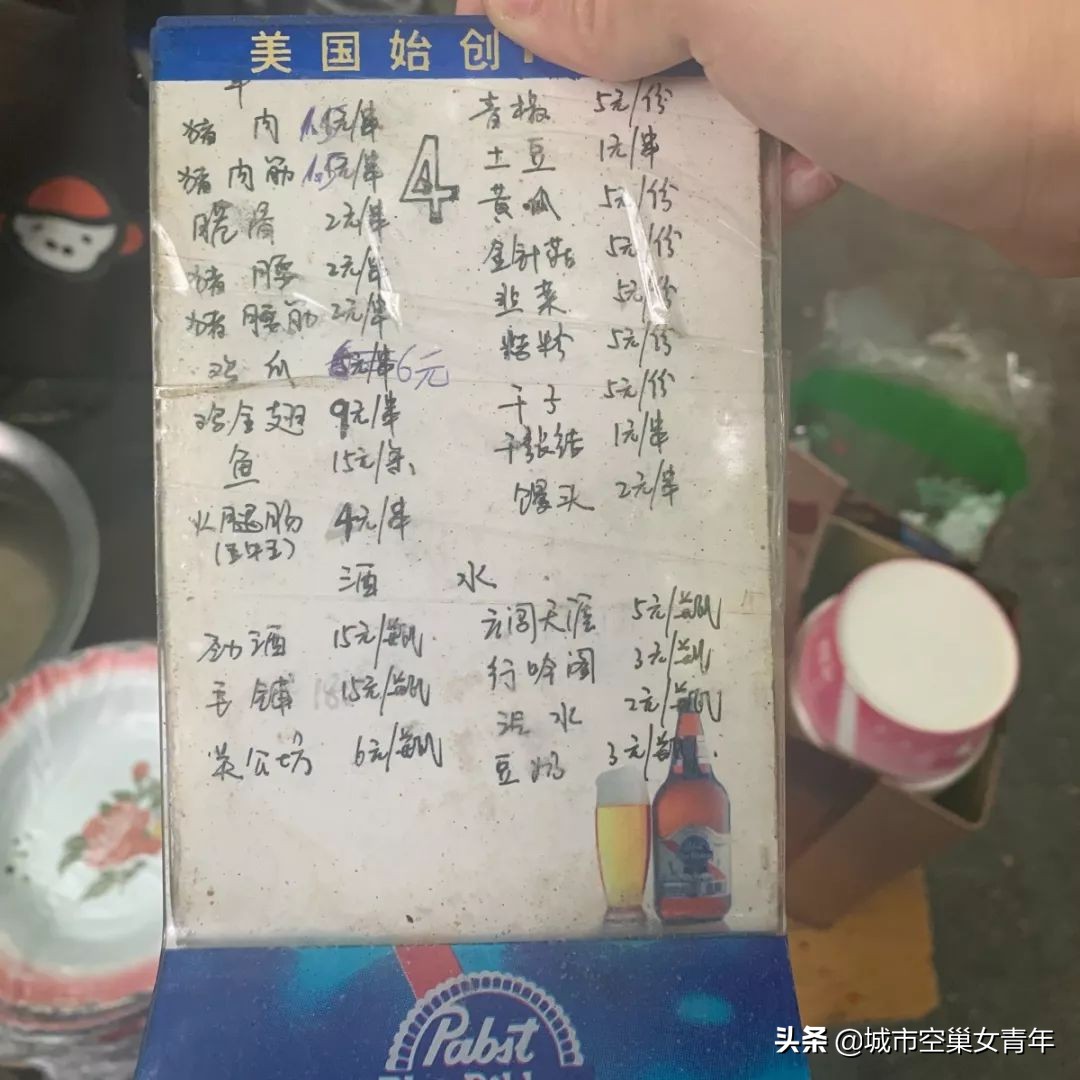 美国始创
猪肉 1.5元/串
猪肉筋 1.5元/串
脆骨 2元/串
猪腰 2元/串
猪腰筋 2元/串
鸡爪 6元
鸡全翅 9元/串
鱼 15元/条
火腿肠 4元/串
4
青椒 5元/份
土豆 1元/串
黄呱 5元/份
金针菇 5元/份
韭菜 5元/份
苕粉 5元/份
干子 5元/份
干张结 1元/串
馒头 2元/串
酒 水
劲酒 15元/瓶
毛铺 15元/瓶
英公坊 6元/瓶
闯天涯 5元/瓶
行吟阁 3元/瓶
水 2元/瓶
豆奶 3元/瓶
Pabst
头条 @城市空巢女青年